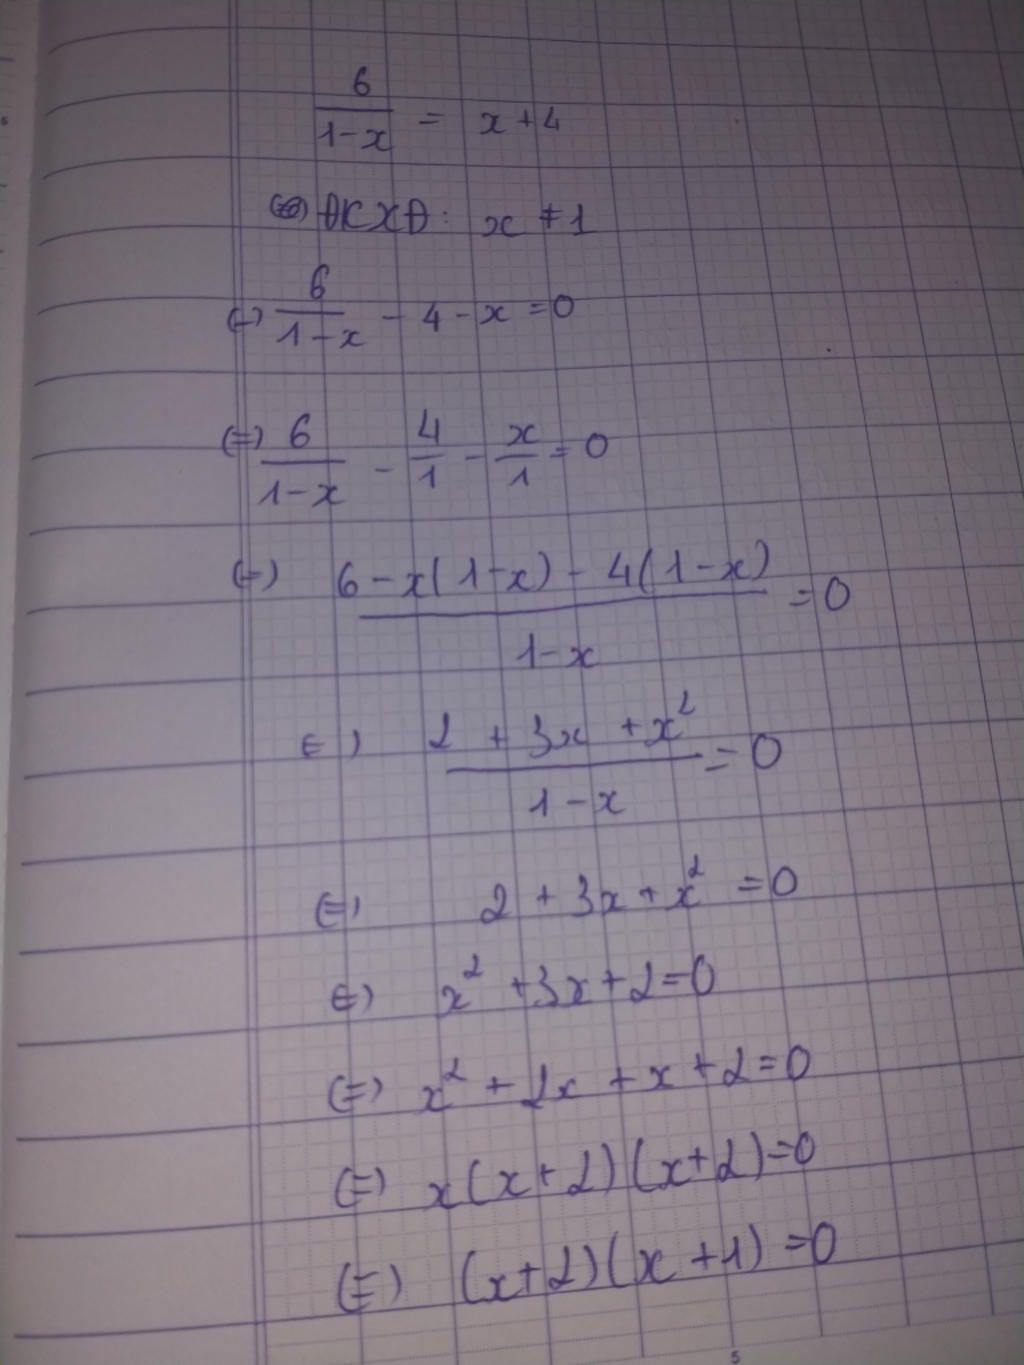 6/(1-x) = x+4
ĐKXĐ: x ≠ 1
(=) 6/(1-x) - 4 - x = 0
(=) 6/(1-x) - 4/1 - x/1 = 0
(=) (6-x(1-x) - 4(1-x))/(1-x) = 0
(=) (2 + 3x + x²)/(1-x) = 0
(=) 2 + 3x + x² = 0
(=) x² + 3x + 2 = 0
(=) x² + 2x + x + 2 = 0
(=) x(x+2)(x+2) = 0
(=) (x+2)(x+1) = 0
5